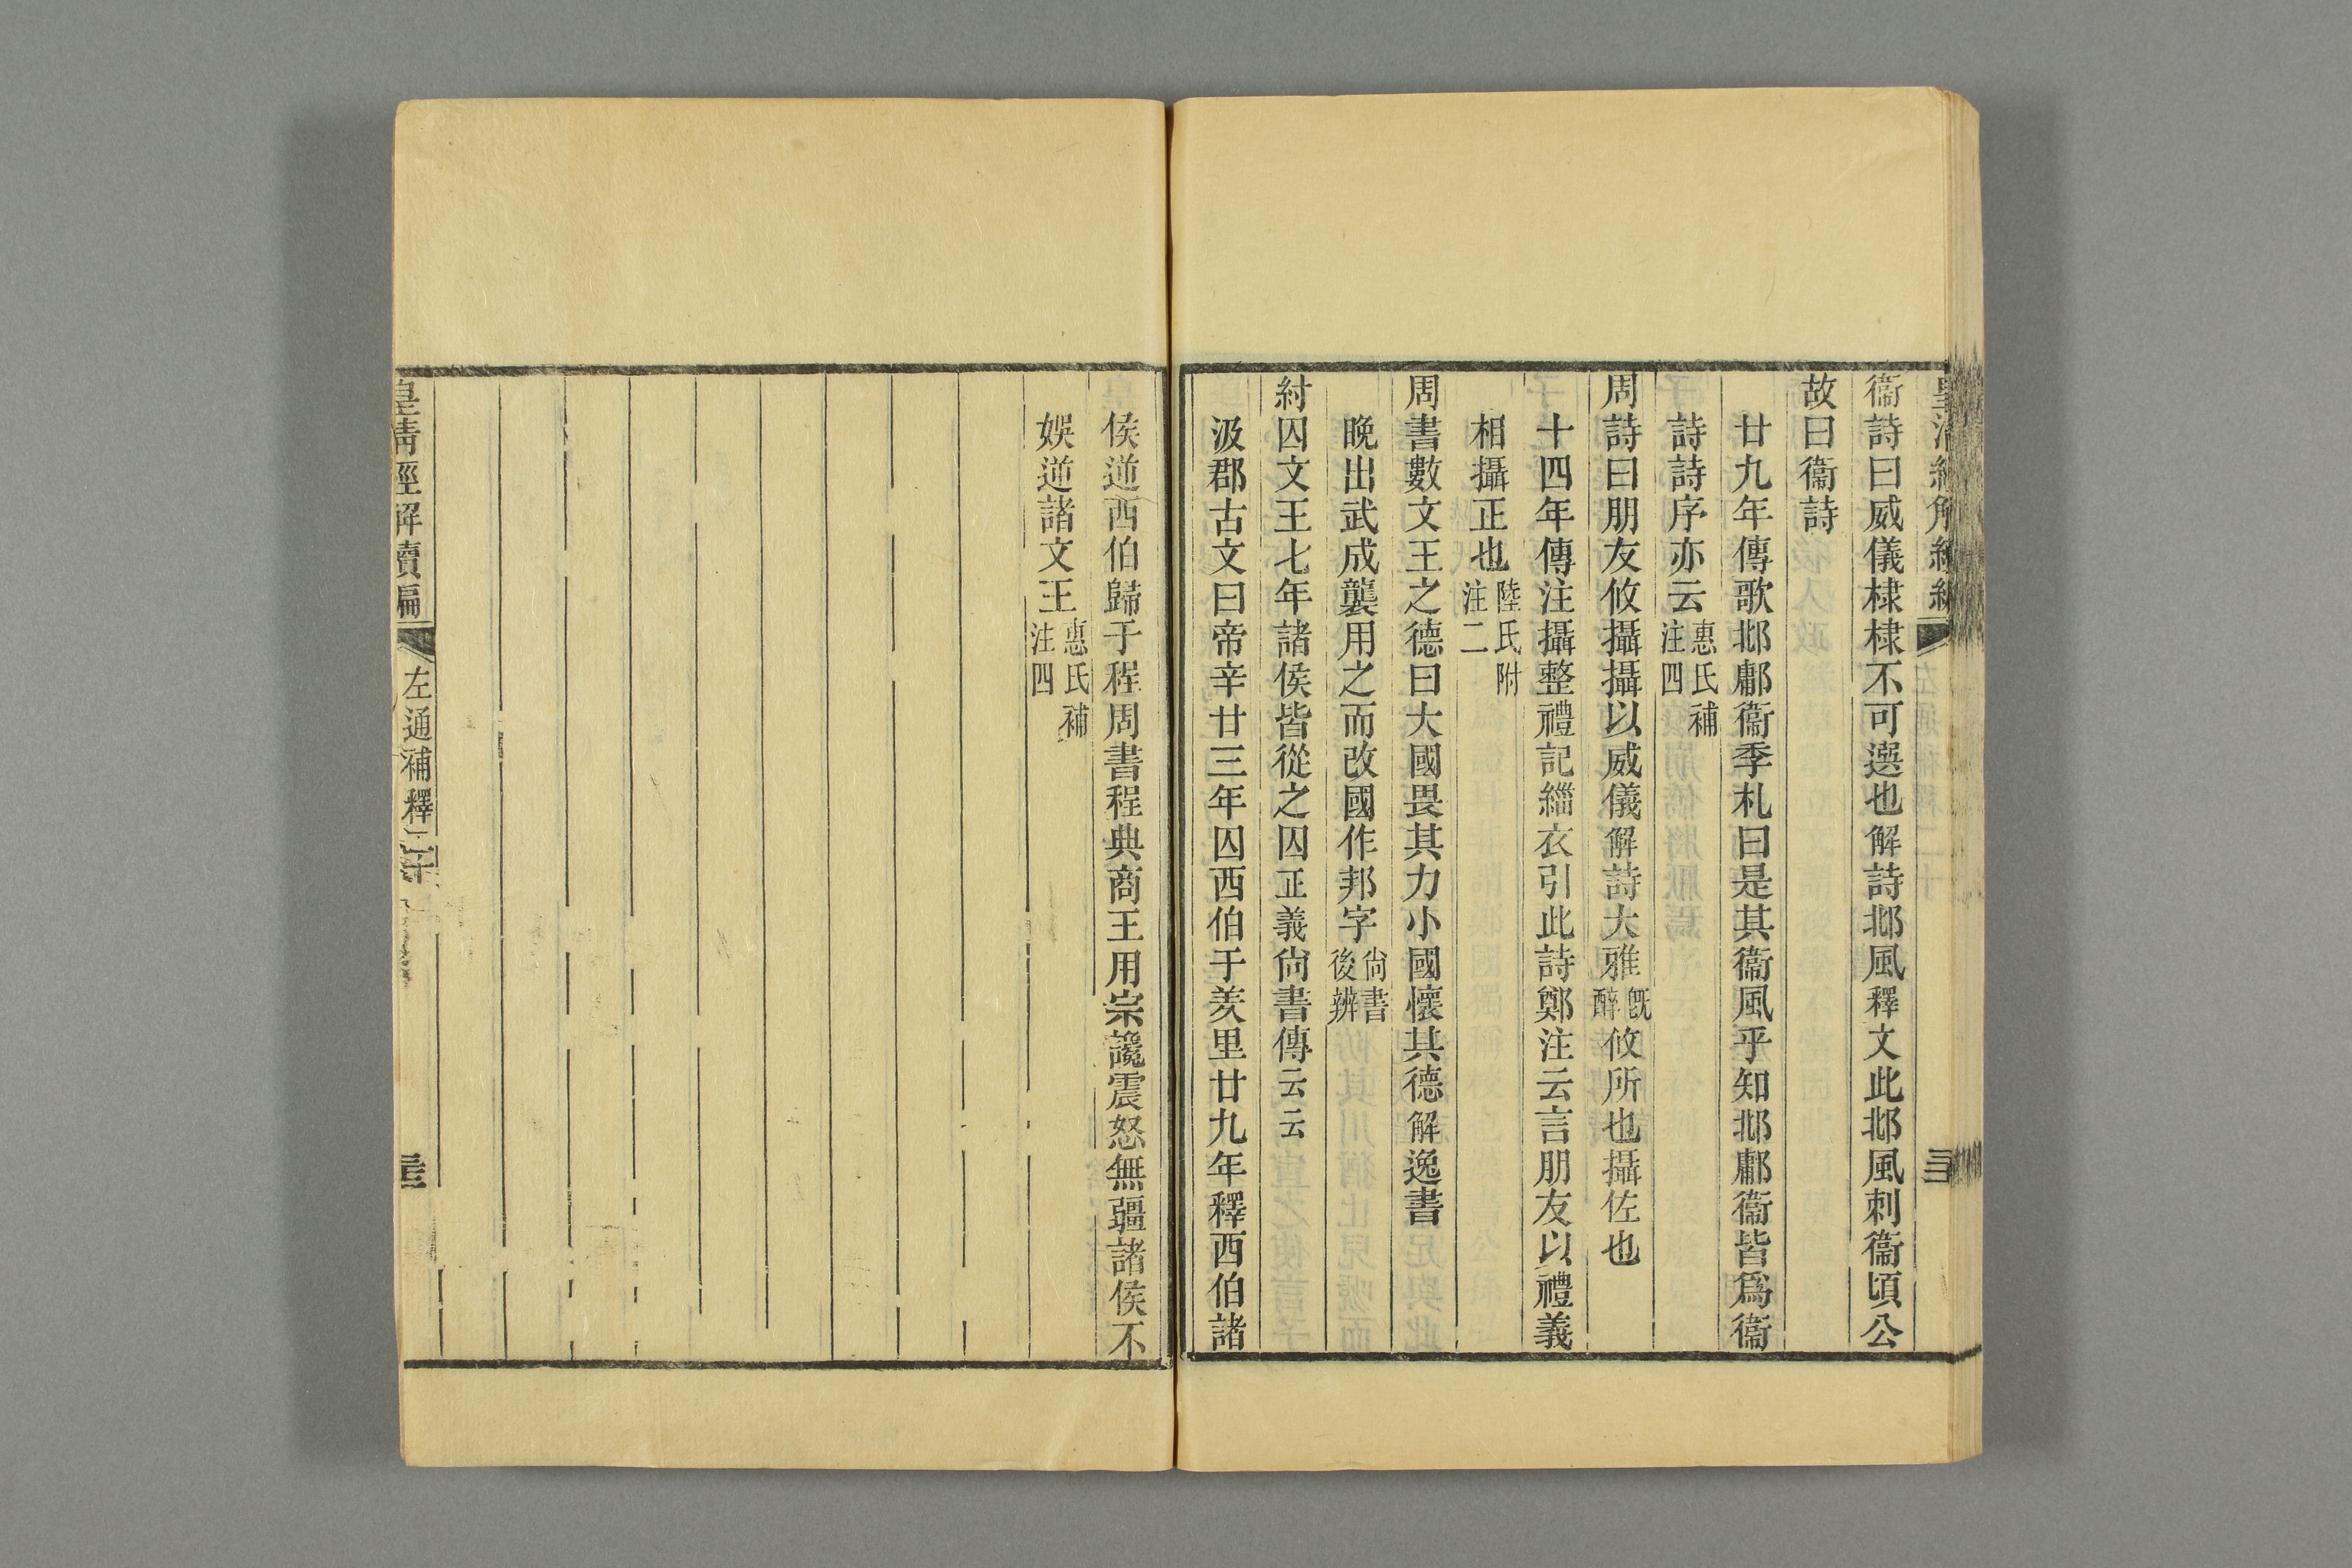 衞詩曰威儀棣棣不可選也解詩邶風釋文此邶風刺衞頃公
故曰衞詩
廿九年傳歌邶鄘衞季札曰是其衞風乎知邶鄘衞皆爲衞
詩詩序亦云惠氏補注四
周詩曰朋友攸攝攝以威儀解詩大雅旣醉攸所也攝佐也
十四年傳注攝整禮記緇衣引此詩鄭注云言朋友以禮義
相攝正也陸氏附注二
周書數文王之德曰大國畏其力小國懷其德解逸書
晚出武成襲用之而改國作邦字尙書後辨
紂囚文王七年諸侯皆從之囚正義尙書傳云云
汲郡古文曰帝辛廿三年囚西伯于羑里廿九年釋西伯諸
侯逆西伯歸于程周書程典商王用宗讒震怒無疆諸侯不
娛逆諸文王惠氏補注四
皇清經解續編
左通補釋二十
三